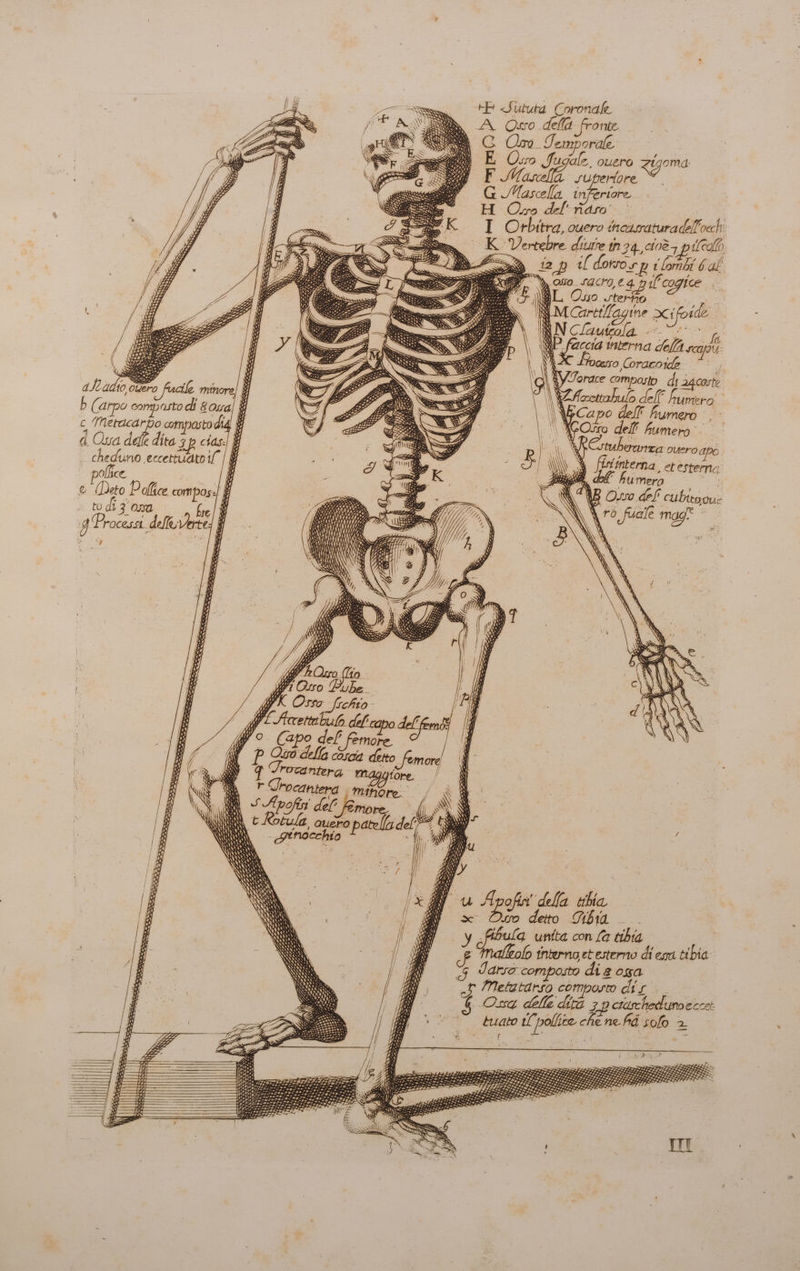 + Sutura Coronale
A Osso della fronte
C Osso Temporale
E Osso Jugale, ouero zigoma
F Mascella superiore
G Mascella inferiore
H Osso del naso
I Orbitra, ouero incassatura dell'occh:
K Vertebre diuise in 24, cioè 7 p il collo
12 p il dorso 5 p i lombi 6 al
osso sacro, e 4 p il cogice
L Osso sterno
M Cartillagine xifoide
N Clauicola
P faccia interna della scapu la
X Processo Coracoide
Y Torace composto di 24 coste
Z Accettabulo dell' humero
Æ Capo dell' humero
Osso dell' humero
R Estuberanza ouero apo
fisi interna, et esterna
del' humero
B Osso del cubito oue
ro fucile mag.e
a Radio, ouero fucile minore
b Carpo composto di 8 ossa
c Metacarpo composto di 4
d Ossa delle dita 3 p cias:
cheduno eccettuato il
pollice
e Deto Pollice compos:
to di 3 ossa
g Processi delle Verte: bre
h Osso Ilio
i Osso Pube
K Osso Ischio
L Accettabulo del capo del femore
o Capo del femore
p Ossò della coscia detto femore
q Trocantera maggiore
r Trocantera minore
s Apofisi del femore
t Rotula, ouero patella del
ginocchio
u Apofisi della tibia
x Osso detto Tibia
y fibula unita con la tibia
malleolo interno, et esterno di essa tibia
5 Tarso composto di 2 ossa
Metatarso composto di 5
6 Ossa delle dita 3 p ciascheduno eccet
tuato il pollice che ne hà solo 2
III